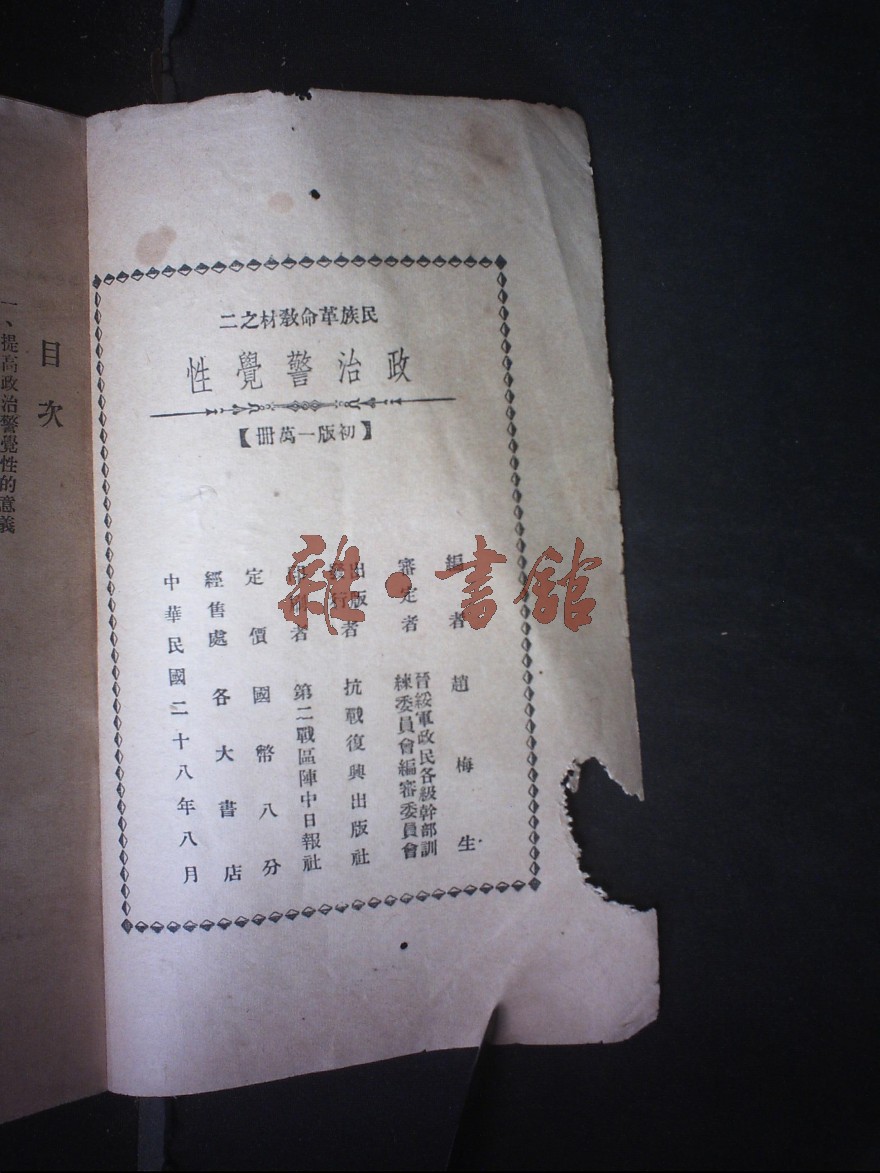 民族革命教材之二
政治警覺性
【初版一萬冊】
編者 趙梅生
審定者 晉綏軍政民各級幹部訓
練委員會編審委員會
出版
發行者 抗戰復興出版社
印刷者 第二戰區陣中日報社
定價 國幣八分
經售處 各大書店
中華民國二十八年八月
目次
一、提高政治警覺性的意義
雜·書館